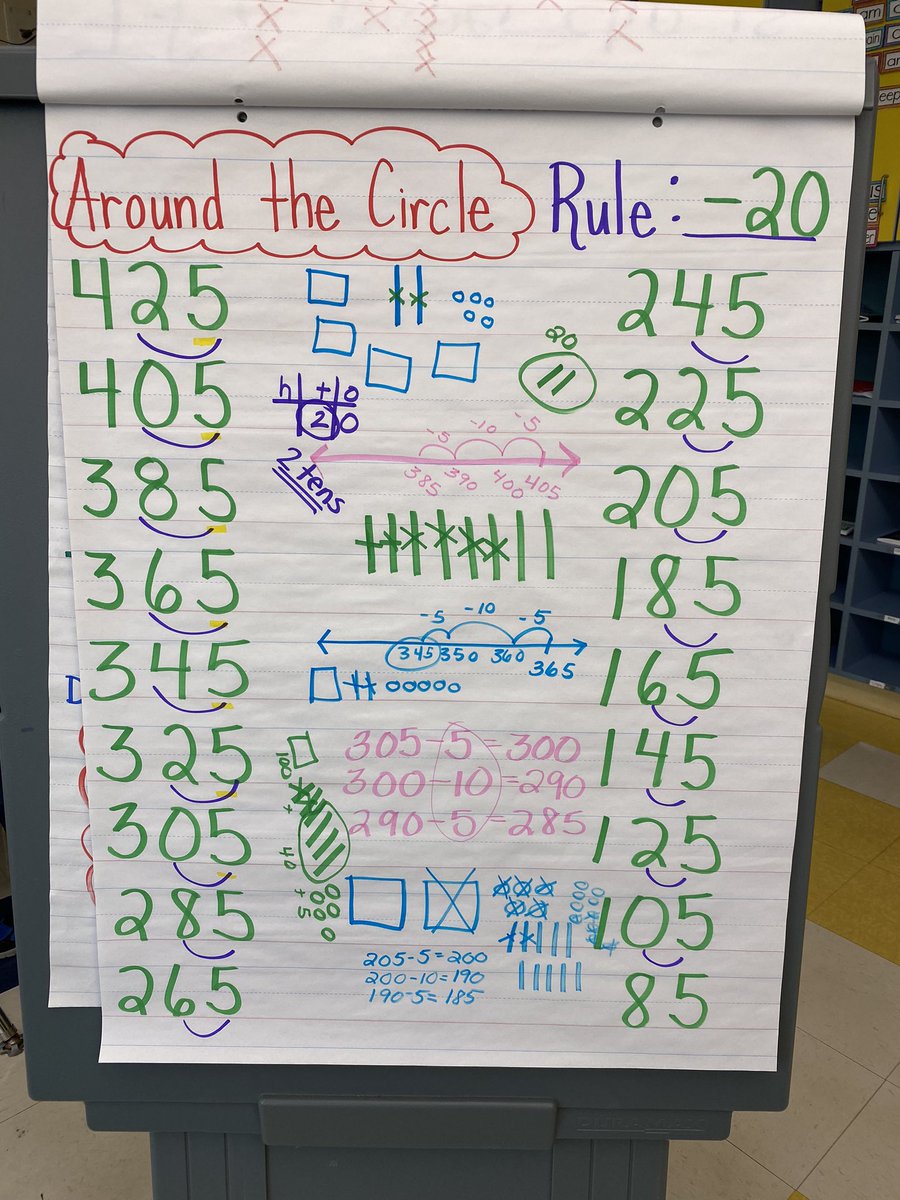 Around the Circle
Rule: -20
425
405
385
365
345
325
305
285
265
20
h t o
2 0
2 tens
-5 -10 -5
385 390 400 405
-5 -10 -5
345 350 360 365
305-5=300
300-10=290
290-5=285
100
+
40
+ 5
205-5=200
200-10=190
190-5=185
245
225
205
185
165
145
125
105
85